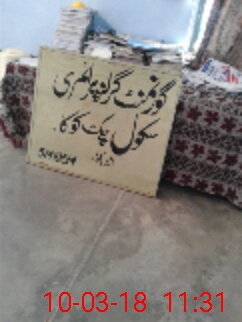 گورنمنٹ گرلز پرائمری
سکول چک کوکا۔
10-03-18 11:31